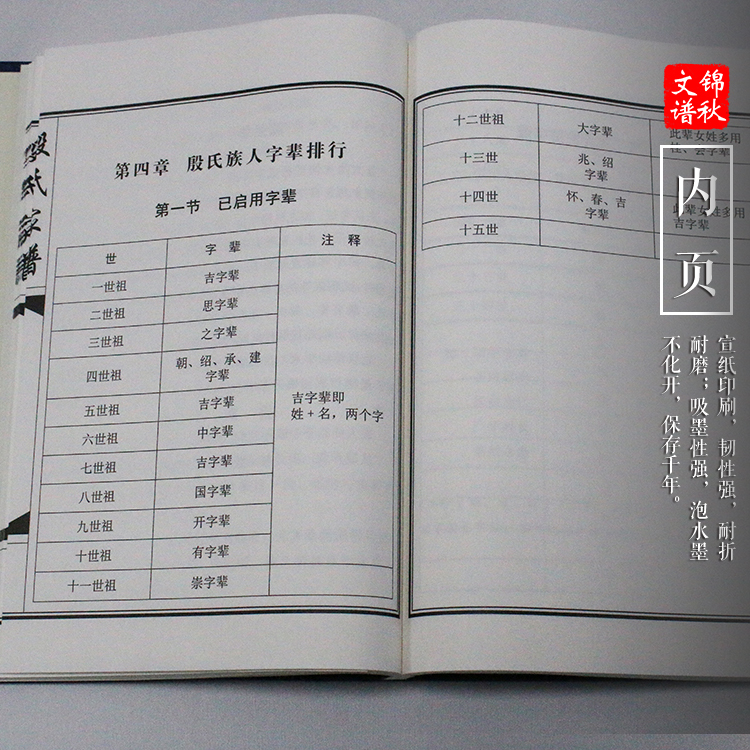 殷氏家谱
第四章 殷氏族人字辈排行
第一节 已启用字辈
世 字 辈 注 释
一世祖 吉字辈
二世祖 思字辈
三世祖 之字辈
四世祖 朝、绍、承、建
字辈
五世祖 吉字辈
吉字辈即
姓+名，两个字
六世祖 中字辈
七世祖 吉字辈
八世祖 国字辈
九世祖 开字辈
十世祖 有字辈
十一世祖 崇字辈
十二世祖 大字辈
此辈女姓多用
字辈
十三世 兆、绍
字辈
十四世 怀、春、吉
字辈
此辈女姓多用
吉字辈
十五世
锦秋
文谱
内页
宣纸印刷，韧性强，耐折
耐磨；吸墨性强，泡水墨
不化开，保存千年。